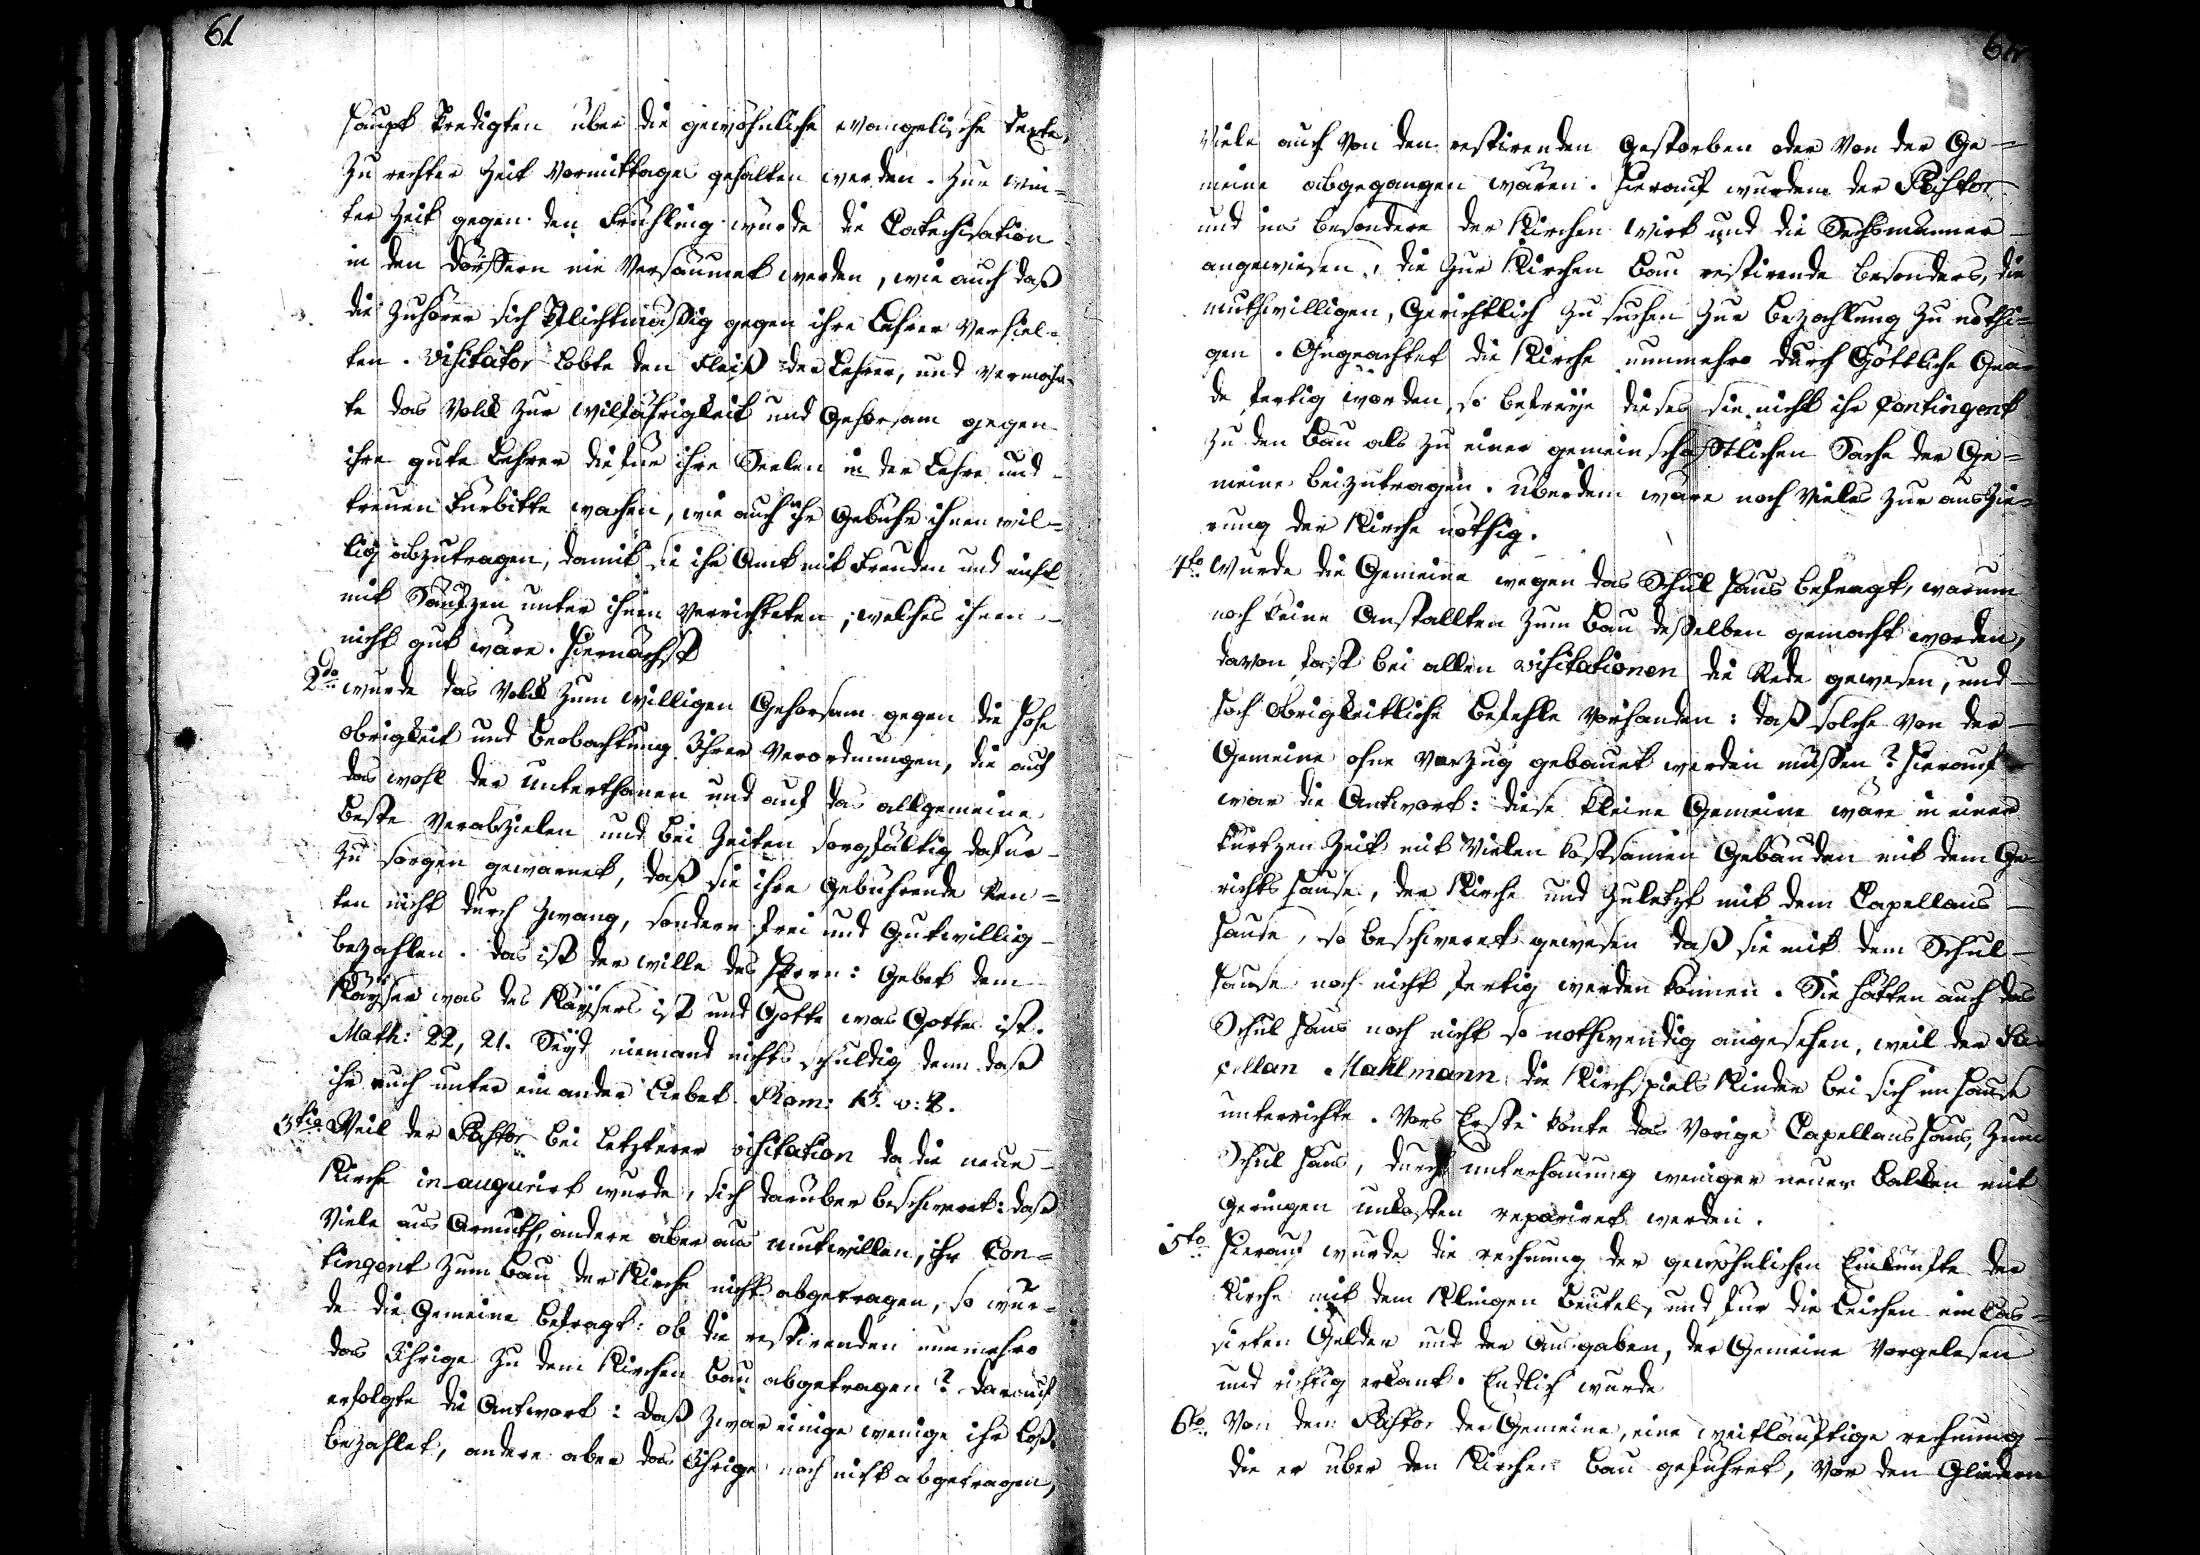 61
Haupt Predigten über die gewöhnliche evangelische Texte,
zu rechter Zeit Vormittages gehalten werden. Zur Win=
ter Zeit gegen den Frühling würde die Catechisation
in den Dörffern nie Versäumet werden, wie auch daß
die Zuhörer sich Pflichtmässig gegen ihre Lehrer Verhiel=
ten. Visitator Lobte den Fleiß der Lehrer, und Vermahn=
te das Volck zur Wilfährigkeit und Gehorsam gegen
ihre gute Lehrer die für ihre Seelen in der Lehre und
treuen Fürbitte wachen, wie auch ihr Gebühr ihnen wil=
lig abzutragen, damit sie ihr Amt mit Freuden und nicht
mit Säufzen unter ihnen Verrichteten; welches ihnen
nicht gut wäre. Hiernächst
2do wurde das Volck zum Willigen Gehorsam gegen die Hohe
Obrigkeit und Beobachtung Ihrer Verordnungen, die auf
das wohl der Unterthanen und auf das allgemeine
Beste Verabzielen und bei Zeiten sorgfältig dafür
zu sorgen gewarnet, daß sie ihre Gebührende Ren=
ten nicht durch Zwang, sondern frei und Gutwillig
bezahlen. Das ist der Wille des Herrn: Gebet dem
Käyser was des Käysers ist und Gotte was Gottes ist.
Math: 22, 21. Seyd niemand nichts schuldig denn daß
ihr euch unter ein ander Liebet. Rom: 13. v: 8.
3tio Weil der Pastor bei Letzterer Visitation da die neue
Kirche inaugurirt wurde, sich darüber beschweret: daß
Viele aus Armuth, andere aber aus Mutwillen, ihr Con=
tingent zum Bau der Kirche nicht abgetragen, so wur=
de die Gemeine befragt: ob die restirenden nunmehro
das Ihrige zu dem Kirchen Bau abgetragen? Darauf
erfolgte die Antwort: Daß zwar einige wenige ihr Loß
bezahlet, andere aber das Ihrige noch nicht abgetragen,
Viele auch Von den restirenden Gestorben oder Von der Ge=
meine abgegangen wären. Hierauf wurden der Pastor
und ins besondere der Kirchen Wirt und die Sechsmänner
angewiesen, die zur Kirchen Bau restirende besonders, die
muthwilligen, Gerichtlich zu suchen zur Bezahlung zu nöthi=
gen. Ungeachtet die Kirche nunmehro durch Göttliche Gna=
de fertig worden, so befreye dieses sie nicht ihr Contingent
zu den Bau als zu einer gemeinschafftlichen Sache der Ge=
meine beizutragen. Überdem wäre noch Vieles zur Auszie=
rung der Kirche nöthig.
4to Wurde die Gemeine wegen das Schul Haus befragt, warum
noch keine Anstallten zum Bau desselben gemacht worden,
davon fast bei allen Visitationen die Rede gewesen, und
Hoch Obrigkeitliche Befehle Vorhanden: daß solche Von der
Gemeine ohne Verzug gebauet werden müssen? Hierauf
war die Antwort: diese kleine Gemeine wäre in einer
kurtzen Zeit mit Vielen kostsamen Gebäuden mit dem Ge=
richts Hause, der Kirche und Zuletzt mit dem Capellans
Hause, so beschweret gewesen daß sie mit dem Schul
Hause noch nicht fertig werden können. Sie hätten auch das
Schul Haus noch nicht so nothwendig angesehen, weil der Ca=
pellan Mahlmann die Kirchspiels Kinder bei sich im Hause
unterrichte. Vors Erste könte das Vorige Capellans Haus, zum
Schul Haus, durch unterhauung weniger neuer Balcken mit
Geringen unkosten repariret werden.
5to Hierauf wurde die rechnung der gewöhnlichen Einkünfte der
Kirche mit dem Klingen Beutel, und für die Leichen ein Cas=
sirten Gelder und der Ausgaben, der Gemeine Vorgelesen
und richtig erkant. Endlich wurde
6to Von dem Pastor der Gemeine, eine weitläuftige rechnung
die er über den Kirchen Bau geführet, Vor den Gliedern